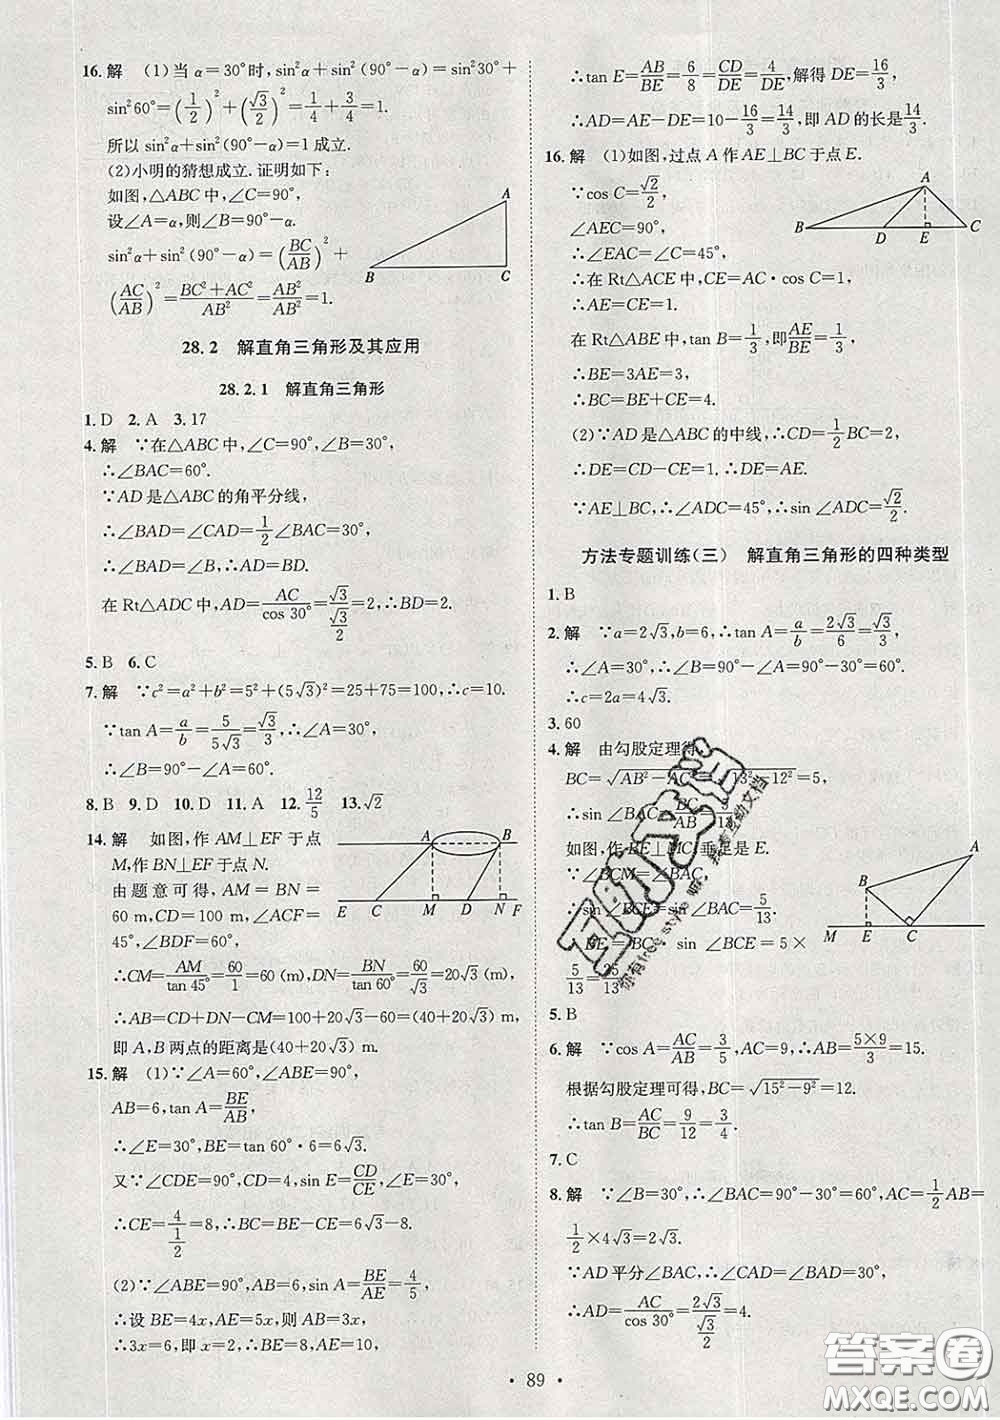 16.解 (1)当 α=30°时,sin²α+sin²(90°-α)=sin²30°+
sin²60°=(1/2)²+(√3/2)²=1/4+3/4=1.
所以 sin²α+sin²(90°-α)=1 成立.
(2)小明的猜想成立.证明如下:
如图,△ABC 中,∠C=90°,
设∠A=α,则∠B=90°-α.
sin²α+sin²(90°-α)=(BC/AB)²+
(AC/AB)²=(BC²+AC²)/AB²=AB²/AB²=1.
A
B
C
28.2 解直角三角形及其应用
28.2.1 解直角三角形
1.D 2.A 3.17
4.解 ∵在△ABC 中,∠C=90°,∠B=30°,
∴∠BAC=60°.
∵AD 是△ABC 的角平分线,
∴∠BAD=∠CAD=1/2∠BAC=30°,
∴∠BAD=∠B,∴AD=BD.
在 Rt△ADC 中,AD=AC/cos 30°=√3/(√3/2)=2,∴BD=2.
5.B 6.C
7.解 ∵c²=a²+b²=5²+(5√3)²=25+75=100,∴c=10.
∵tan A=a/b=5/(5√3)=√3/3,∴∠A=30°,
∴∠B=90°-∠A=90°-30°=60°.
8.B 9.D 10.D 11.A 12.12/5 13.√2
14.解 如图,作 AM⊥EF 于点
M,作 BN⊥EF 于点 N.
由题意可得,AM=BN=
60 m,CD=100 m,∠ACF=
45°,∠BDF=60°,
A B
E C M D N F
∴CM=AM/tan 45°=60/1=60 (m),DN=BN/tan 60°=60/√3=20√3 (m),
∴AB=CD+DN-CM=100+20√3-60=(40+20√3) m,
即 A,B 两点的距离是(40+20√3) m.
15.解 (1)∵∠A=60°,∠ABE=90°,
AB=6,tan A=BE/AB,
∴∠E=30°,BE=tan 60°·6=6√3.
又∵∠CDE=90°,CD=4,sin E=CD/CE,∠E=30°,
∴CE=4/(1/2)=8,∴BC=BE-CE=6√3-8.
(2)∵∠ABE=90°,AB=6,sin A=BE/AE=4/5,
∴设 BE=4x,AE=5x,则 AB=3x,
∴3x=6,即 x=2,∴BE=8,AE=10,
∴tan E=AB/BE=6/8=CD/DE=4/DE,解得 DE=16/3,
∴AD=AE-DE=10-16/3=14/3,即 AD 的长是14/3.
16.解 (1)如图,过点 A 作 AE⊥BC 于点 E.
∵cos C=√2/2,
∠AEC=90°,
∴∠EAC=∠C=45°,
∴在 Rt△ACE 中,CE=AC·cos C=1,
∴AE=CE=1.
A
B D E C
在 Rt△ABE 中,tan B=1/3,即AE/BE=1/3,
∴BE=3AE=3,
∴BC=BE+CE=4.
(2)∵AD 是△ABC 的中线,∴CD=1/2BC=2,
∴DE=CD-CE=1,∴DE=AE.
∵AE⊥BC,∴∠ADC=45°,∴sin ∠ADC=√2/2.
方法专题训练(三) 解直角三角形的四种类型
1.B
2.解 ∵a=2√3,b=6,∴tan A=a/b=2√3/6=√3/3,
∴∠A=30°,∴∠B=90°-∠A=90°-30°=60°.
∴c=2a=4√3.
3.60
4.解 由勾股定理得,
BC=√(AB²-AC²)=√(13²-12²)=5,
∴sin ∠BAC=BC/AB=5/13.
如图,作 BE⊥MC,垂足是 E.
∵∠BCM=∠BAC,
∴sin∠BCE=sin∠BAC=5/13.
∴BE=BC·sin ∠BCE=5×
5/13=25/13.
A
B
M E C
5.B
6.解 ∵cos A=AC/AB=3/5,AC=9,∴AB=(5×9)/3=15.
根据勾股定理可得,BC=√(15²-9²)=12.
∴tan B=AC/BC=9/12=3/4.
7.C
8.解 ∵∠B=30°,∴∠BAC=90°-30°=60°,AC=1/2AB=
1/2×4√3=2√3.
∵AD 平分∠BAC,∴∠CAD=30°,
∴AD=AC/cos 30°=2√3/(√3/2)=4.
· 89 ·
答案圈
MXQE.COM